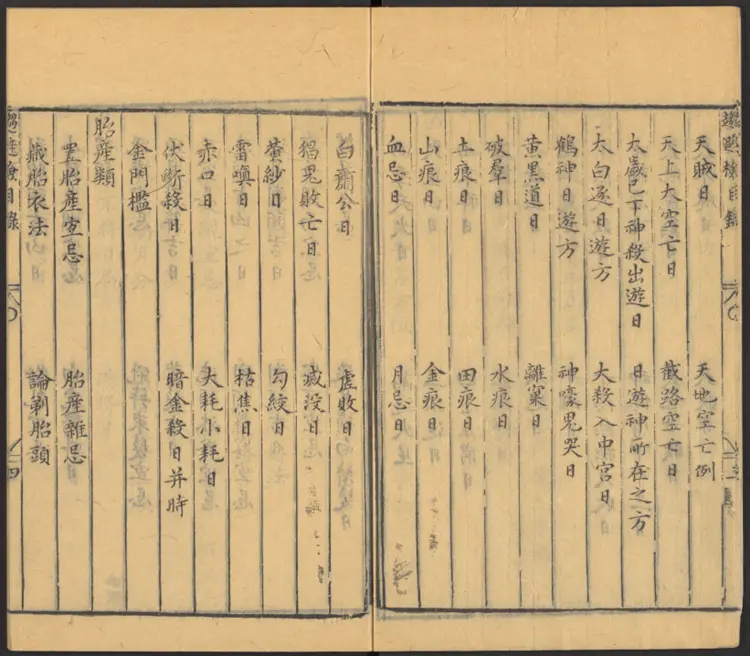 趨避檢目錄 三
天賊日 天地空亡例
天上大空亡日 截路空亡日
太歲已下神殺出遊日 日遊神所在之方
太白逐日遊方 大殺入中宮日
鶴神日遊方 神嚎鬼哭日
黃黑道日 離窠日
破羣日 水痕日
土痕日 田痕日
山痕日 金痕日
血忌日 月忌日
白公日 虛敗日
猖鬼敗亡日 滅沒日
黃紗日 勾絞日
雷嗔日 枯焦日
赤口日 大耗小耗日
伏斷殺日 暗金殺日并時
金門檻
胎產類
置胎產室忌 胎產雜忌
藏胎衣法 論剃胎頭
趨避檢目錄 四